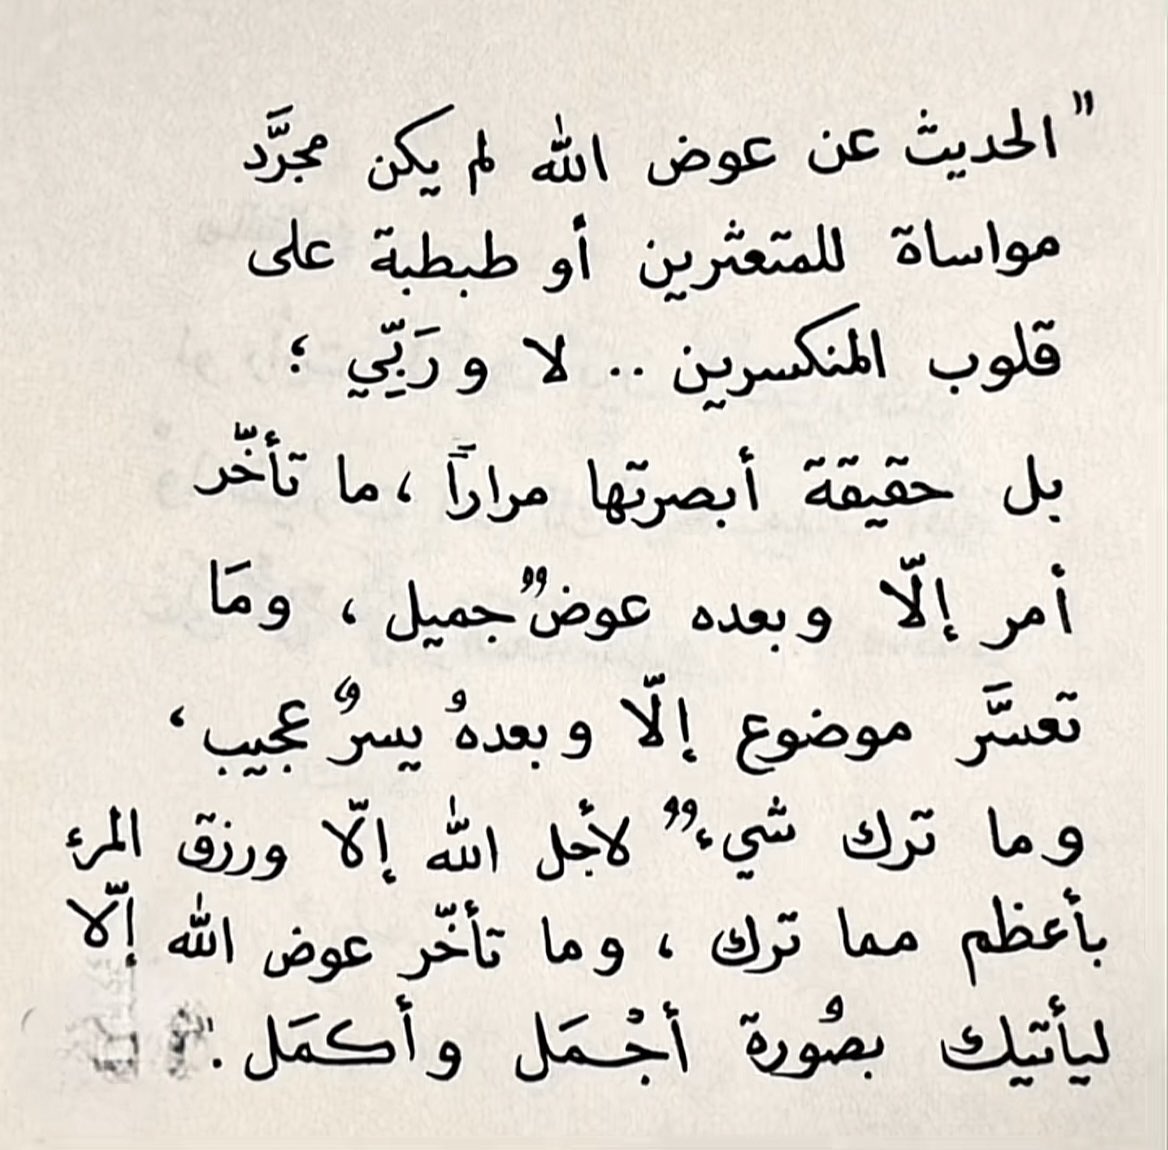 "الحديث عن عوض الله لم يكن مجرَّد
مواساة للمتعثرين أو طبطبة على
قلوب المنكسرين .. لا و رَبِّي ؛
بل حقيقة أبصرتها مراراً ، ما تأخّر
أمر إلّا وبعده عوضٌ جميل ، ومَا
تعسَّر موضوع إلّا وبعدهُ يسرٌ عجيب ،
وما ترك شيءٌ لأجل اللّٰه إلّا ورزق المرء
بأعظم مما ترك ، وما تأخّر عوض اللّٰه إلّا
ليأتيك بصُورة أجْمَل وأكمَل ."